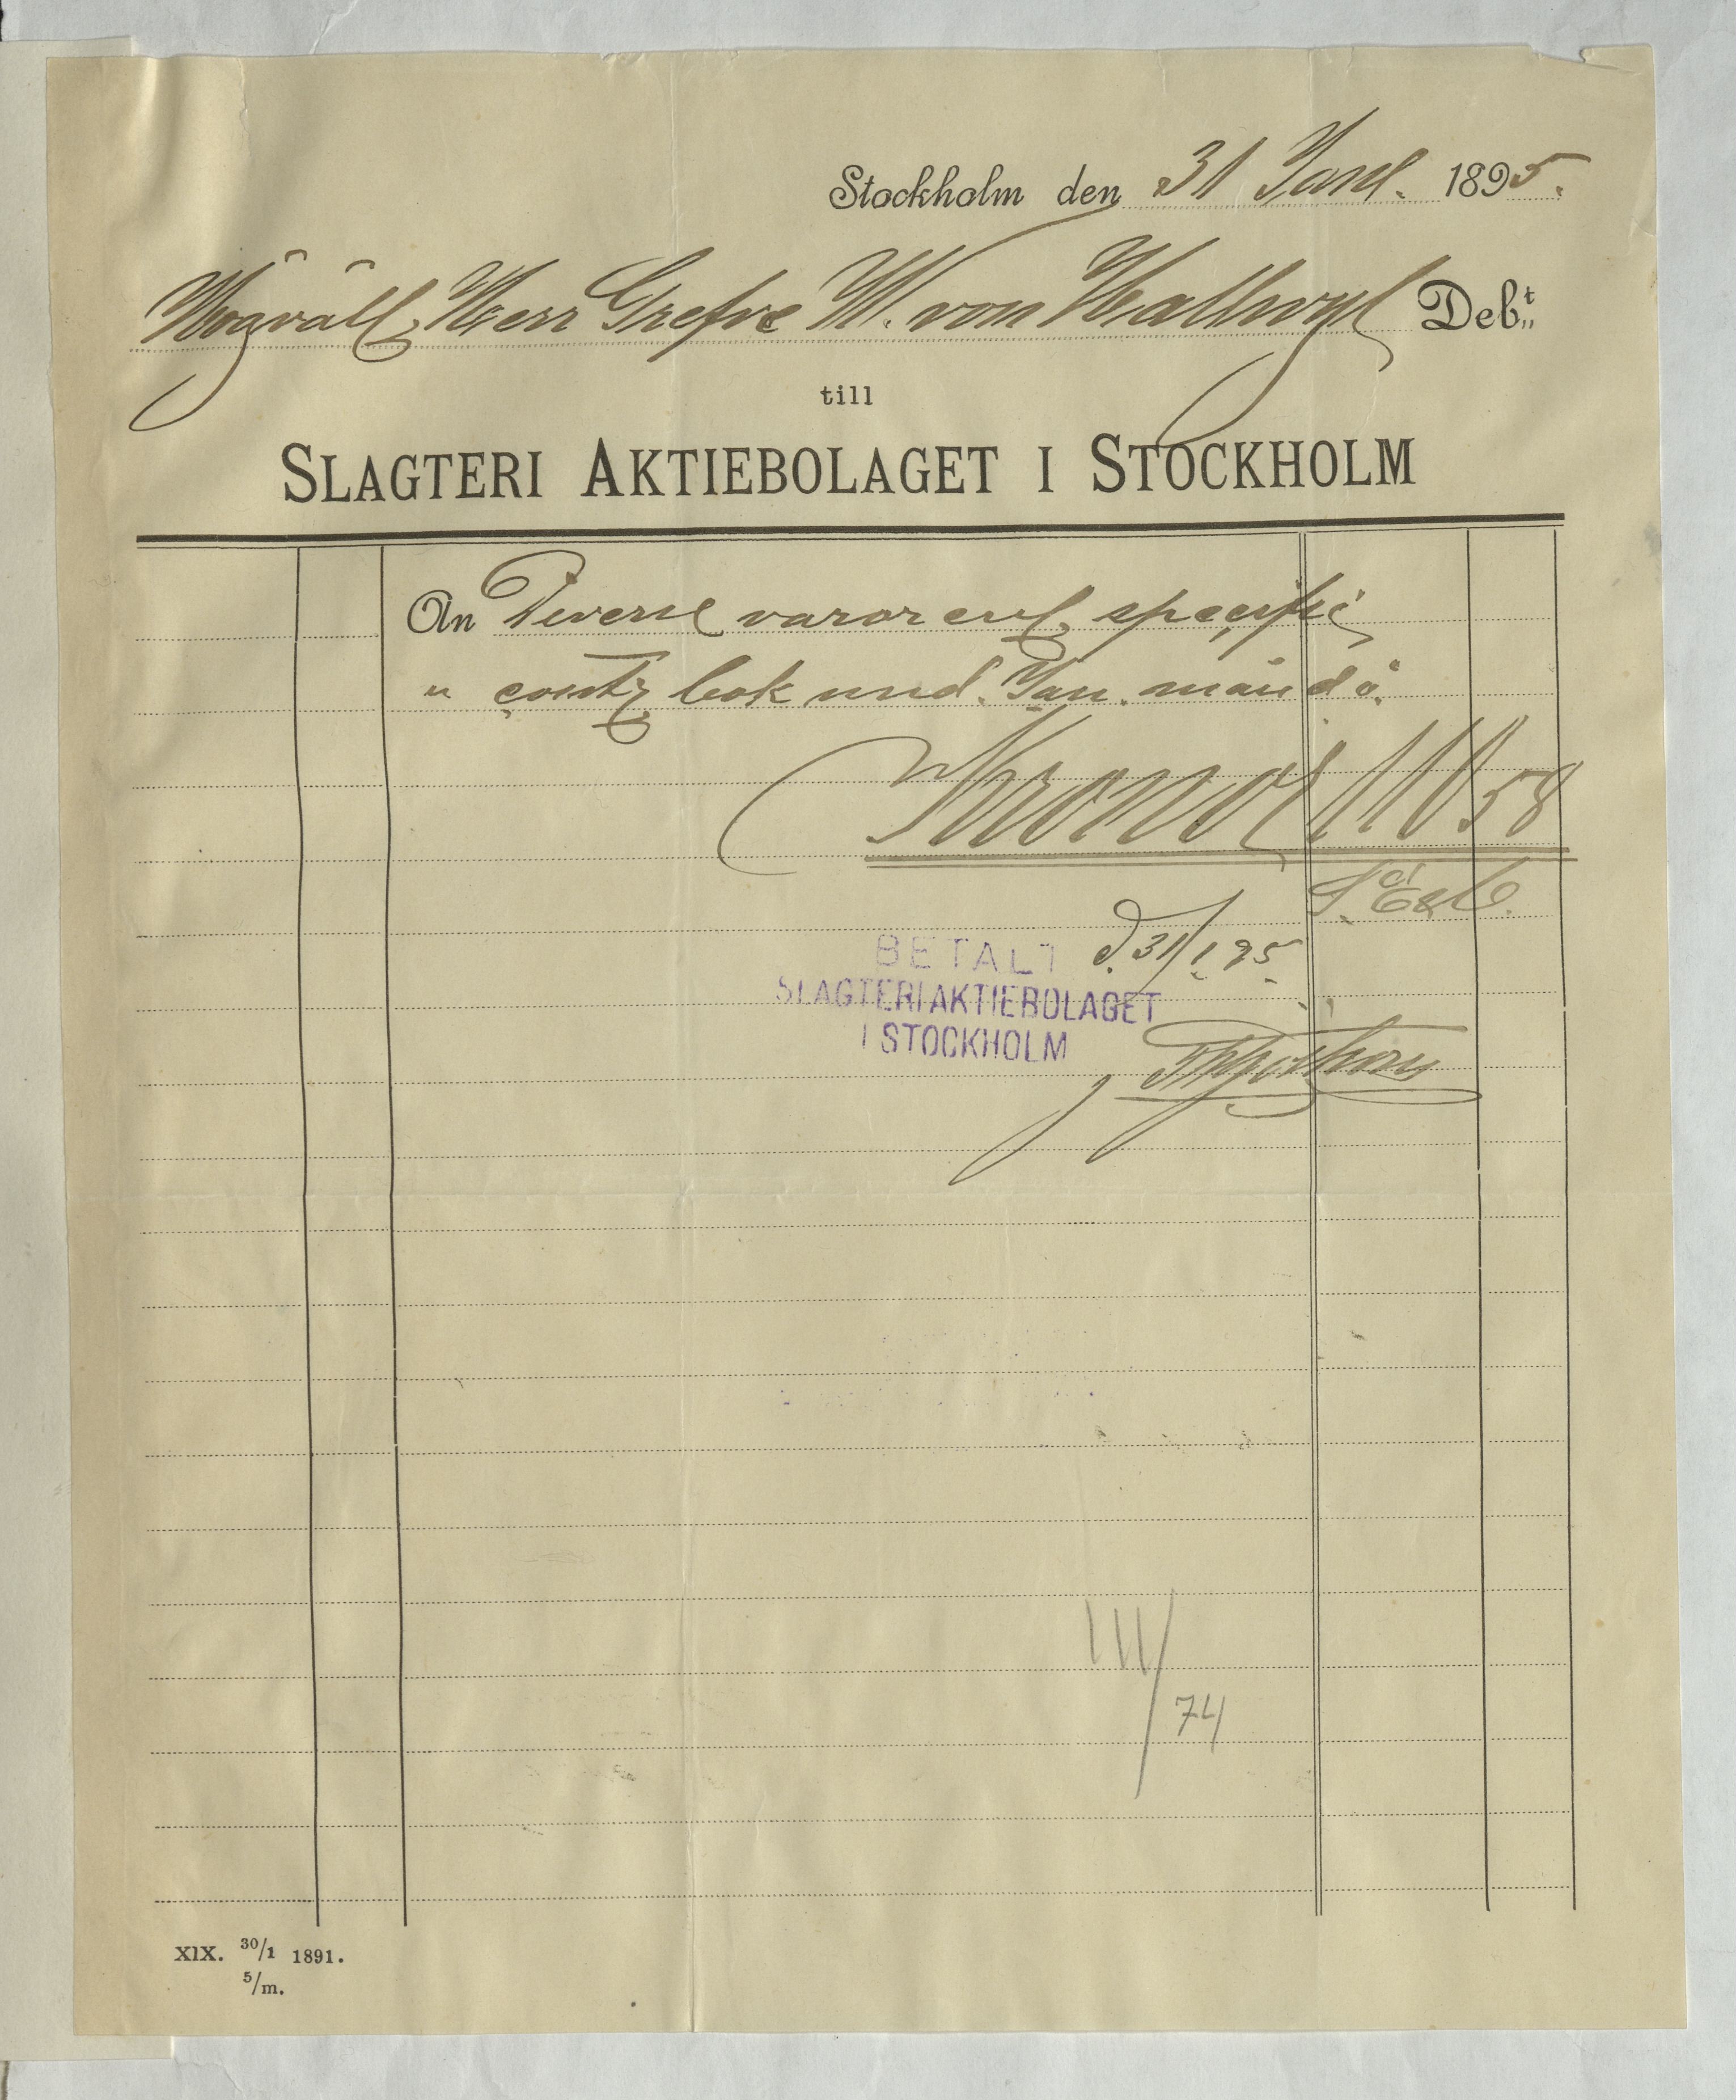 Stockholm den 31 Janl. 1895.
Högväll. Herr Grefve W. von Hallwyl Deb.t
till
SLAGTERI AKTIEBOLAGET I STOCKHOLM
An Diverse varor enl. specifik
" contr. bok und. Jan. månd å.
Kronor 111 58
S. E & O.
BETALT d. 31/1 95
SLAGTERIAKTIEBOLAGET
I STOCKHOLM
111/
74
XIX. 30/1 1891.
5/m.